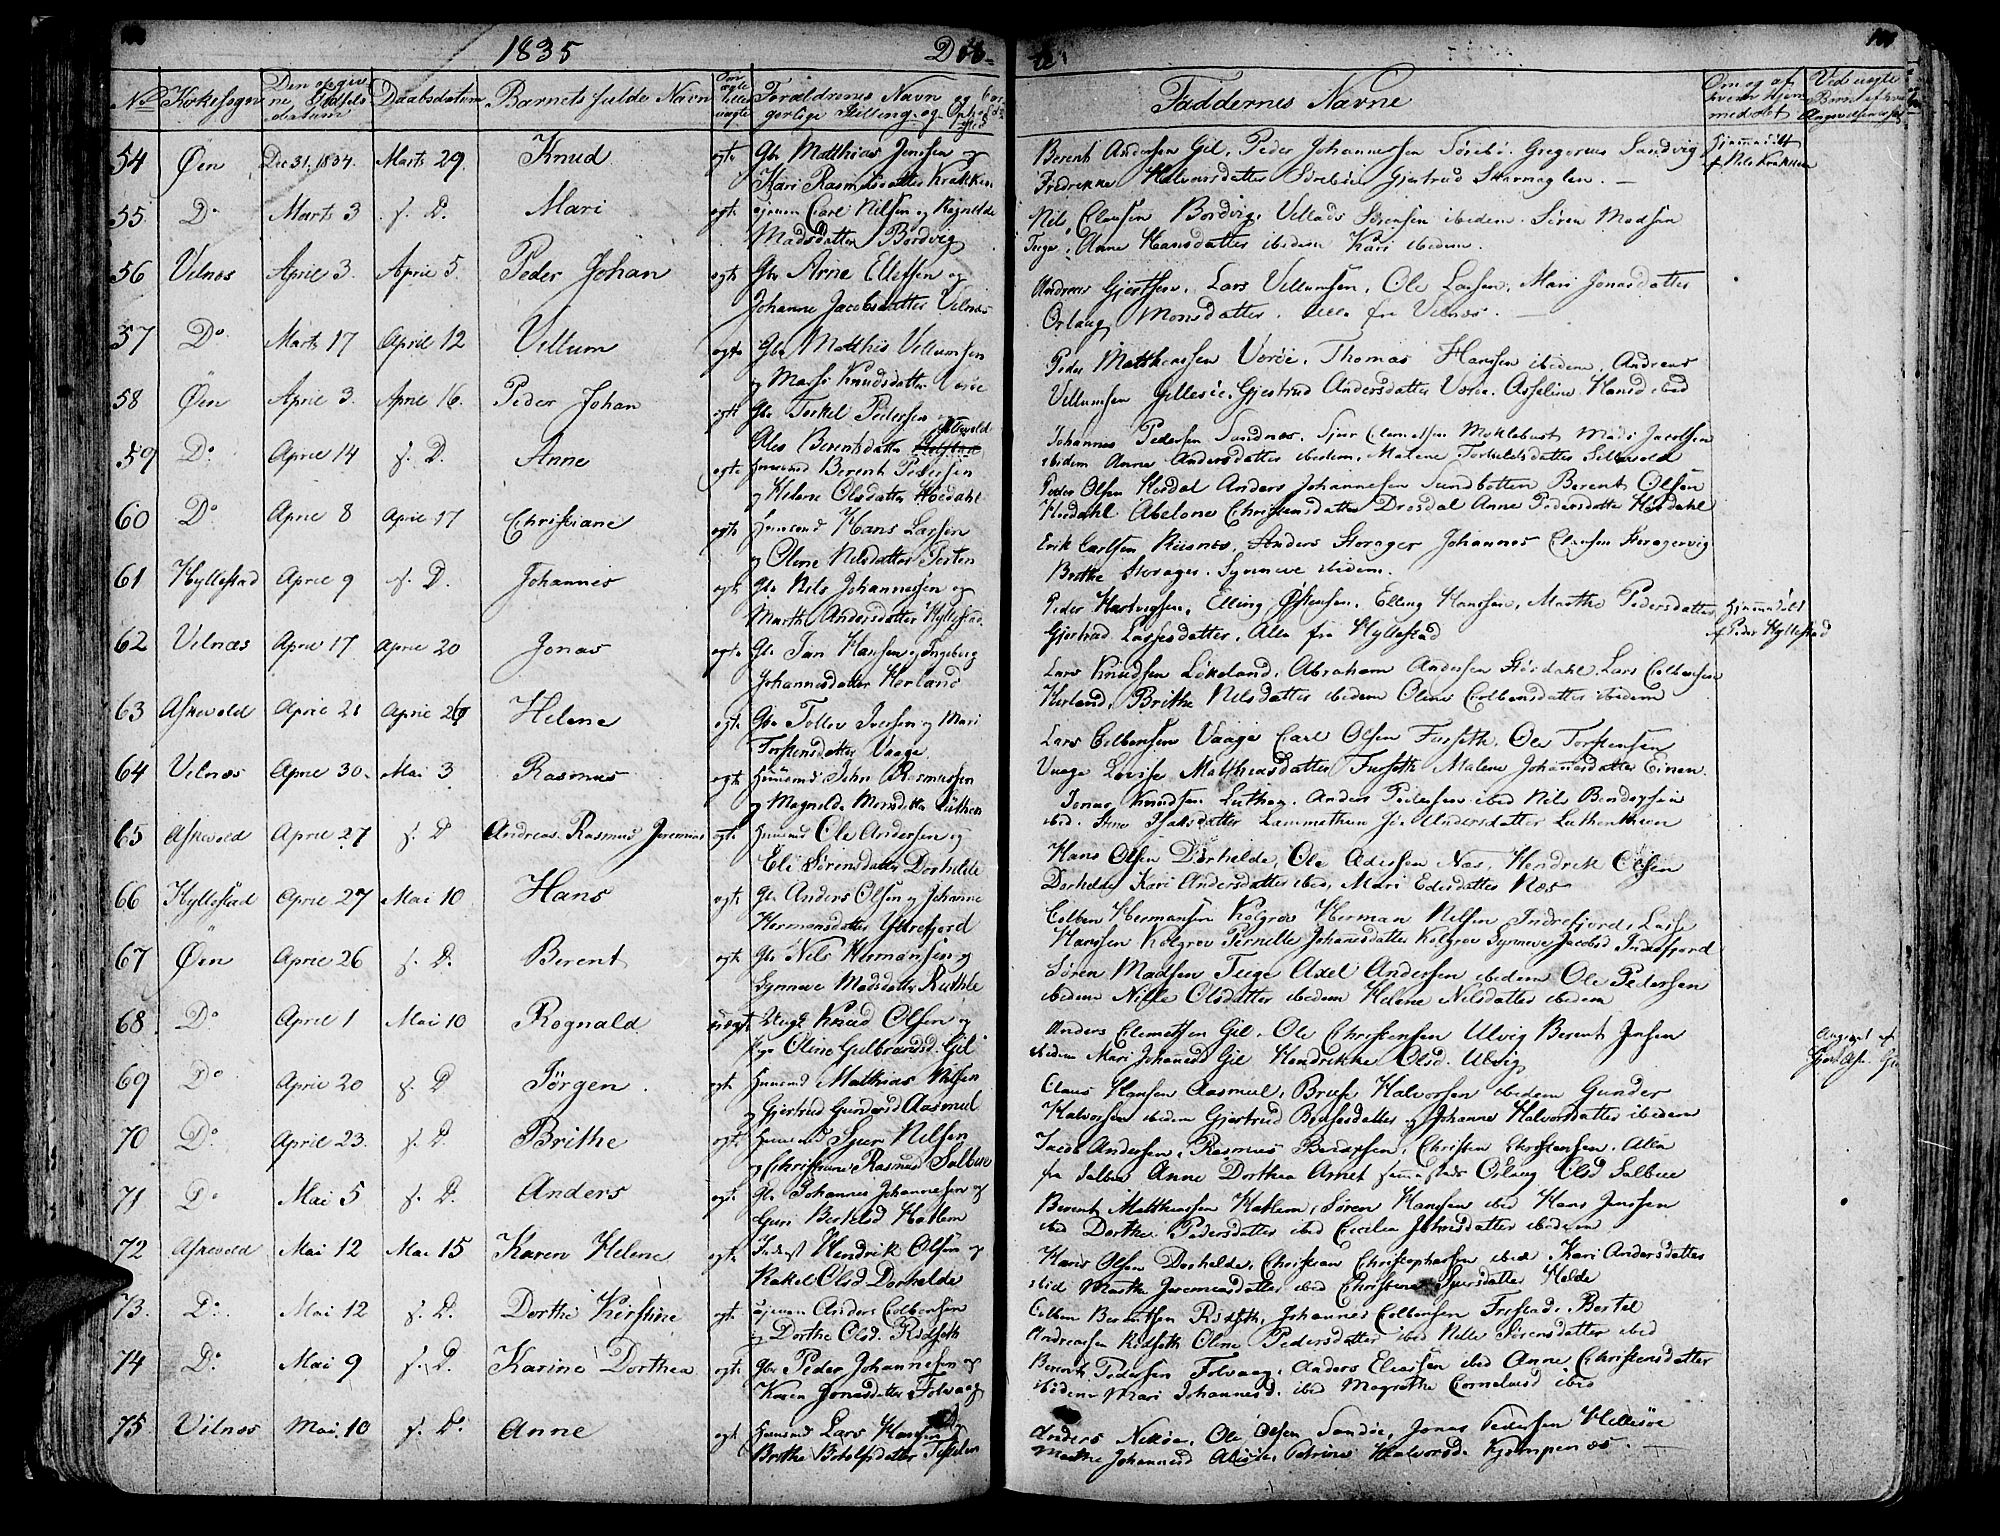 1835 Døb-
te
No Kirkesogn Den opgivne Födsels datum Daabsdatum Barnets fulde Navn Om ægte eller uægte Forældrenes Navn og borgerlige Stilling og Opholdssted
Faddernes Navne
Om og af hvem Hjemmedøbt
Ved uægte Børn
54 Øen Dec 31, 1834. Marts 29. Knud ægte Gbr Matthias Jensen og
Kari Rasmusdatter Krakken
Berent Andersen Gil, Peder Johannessen Sörebö. Gregorius Sandvig
Fredrikke Halvorsdatter Sörebö Gjertrud Skarnaglen.
Hjemmedöbt
af Nils Krakken
55 Do Marts 3 s. D. Mari ægte Carl Nilsen og Ragnilde
Madsdatter Bordvig
Nils Clausen Bordvig, Villads Sörensen ibedem. Sören Madsen
Teige, Anne Hansdatter ibedem Kari ibedem.
56 Vilnæs April 3. April 5. Peder Johan ægte Gbr Arne Elleffsen og
Johanne Jacobsdatter Vilnæs
Andreas Gjertsen, Lars Villumsen, Ole Larsen, Mari Jonasdatter
Orlaug Monsdatter. Alle fra Vilnæs.
57 Do Marts 17 April 12 Villum ægte Gbr Matthis Villumsen
og Marthe Knudsdatter Voröe
Peder Matthiassen Voröe, Thomas Hanssen ibedem, Andreas
Villumsen Gillesöe, Gjertrud Andersdatter Voröe. Asseline Hansd ibed
58 Øen April 3. April 16. Peder Johan ægte Gbr Torkel Pedersen og
Ales Berentsdatter Sellevold
Johannes Pedersen Sandnæs. Sjur Clemetsen Moklebust Mads Jacobsen
ibedem Anne Andersdatter ibedem, Malene Torkelsdatter Sellevold
59 Do April 14 s. D. Anne ægte Huusmd Berent Pedersen
og Helene Olsdatter Hordahl
Peder Olsen Hordal Anders Johannesen Sundbotten Berent Olsen
Hordahl Abelone Christensdatter Drosdal Anne Pedersdatter Hordahl
60 Do April 8 April 17 Christiane ægte Huusmd Hans Larsen
og Oline Nilsdatter
Erik Carlsen Risnes. Anders Storager Johannes Clausen Storagervig
Brithe Storager. Synneve ibedem.
61 Hyllestad April 9 s. D. Johannes ægte Gbr Nils Johannessen og
Marthe Andersdatter Hyllestad
Peder Hartvigsen, Elling Østensen. Elling Hanssen, Marthe Pedersdatter
Gjertrud Lassesdatter, Alle fra Hyllestad
Hjemmedöbt
af Peder Hyllestad
62 Vilnæs April 17 April 20 Jonas ægte Gbr Jan Hansen og Ingeborg
Johannesdatter Herland
Lars Knudsen Lökeland, Abraham Andersen Stördahl Lars Colbensen
Herland, Brithe Nilsdatter ibedem Oline Colbensdatter ibedem
63 Askevold April 21 April 26 Helene ægte Gbr Tollev Iversen og Mari
Torstensdatter Vaage
Lars Colbensen Vaage Carl Olsen Furseth. Ole Torstensen
Vaage Lovise Matthiasdatter Furseth Malene Johannesdatter Einen
64 Vilnæs April 30. Mai 3 Rasmus ægte Huusmd John Rasmussen
og Magnilde Monsdatter Luthen
Jonas Knudsen Luthen. Anders Pedersen ibed Nils Bendixsen
ibed. Isaksdatter Andersdatter
65 Askevold April 27 s. D Andreas Rasmus Jeremias ægte Huusmd Ole Andersen og
Eli Sörensdatter Dorhelde
Hans Olsen Dorhelde, Ole Næs, Hendrik Olsen
Dorhelde Kari Andersdatter ibed, Mari Næs
66 Hyllestad April 27 Mai 10 Hans ægte Gbr Anders Olsen og Johanne
Hermansdatter Ytrefjord
Colben Hermansen Kolgrov Herman Nilsen Indrefjord, Lasse
Hanssen Kolgrov Pernille Johannesdatter Kolgrov Synneve Jacobsd Indrefjord
67 Øen April 26 s. D. Berent ægte Gbr Nils Hermansen og
Synneve Madsdatter Risthle
Sören Madsen Teige Axel Andersen ibedem Ole Pedersen
ibedem Nille Olsdatter ibedem Helene Nilsdatter ibedem
68 Do April 1 Mai 10 Rognald uægte Ungk Knud Olsen og
Pige Oline Gulbrandsd. Gil
Anders Clemetsen Gil. Ole Christensen Ulvig Berent Jensen
ibedem Mari Johannesd Gil Hendrikke Olsd. Ulvig
Angivet af
69 Do April 20 s. D Jörgen ægte Huusmd Mathias Nilsen
og Gjertrud Gundersd Aasmul
Claus Hansen Aasmul, Brusse Halvorsen ibedem Gunder
Halvorsen ibedem Gjertrud Brusesdatter og Johanne Halvorsdatter ibedem
70 Do April 23. s. D. Brithe ægte Huusmd Sjur Nilsen
og Christiane Rasmusd Salbue
Jacob Andersen, Rasmus Bendixsen, Christen Christensen, Alle
fra Salbue Anne Dorthea Arnet Orlaug Olsd Salbue
71 Do Mai 5 s. D. Anders ægte Gbr Johannes Johannesen og
Guri Bertelsd Hatlem
Berent Matthiassen Hatlem, Sören Hansen ibed Hans Jenssen
ibed Dorthe Pedersdatter ibed Cecilia Johnsdatter ibedem
72 Askevold Mai 12 Mai 15 Karen Helene ægte Hendrik Olsen og
Rakel Olsd Dorhelde
Hans Olsen Dorhelde, Christian Christophersen ibed Kari Andersdatter
ibid Marthe Jeremiasdatter ibed Christiane Sjursdatter Helde
73. Do. Mai 12 s. D. Dorthe Kirstine ægt. Anders Colbensen
og Dorthe Olsd. Ridseth
Colben Berentsen Ridseth, Johannes Colbensen Frestad, Bertel
Andreassen Ridseth Oline Pedersdatter ibed Nille Sörensdatter ibed
74 Do. Mai 9 s. D. Karine Dorthea ægt. Gbr Peder Johannesen og
Karen Jonasdatter Folvaag
Berent Pedersen Folvaag, Anders Eliassen ibed Anne Christensdatter
ibidem Mari Johannesd. ibed Magrethe Corneliusd ibed
75 Vilnæs Mai 10 s. D. Anne ægt. Huusmd Lars Hansen og
Brithe Botolfsdatter
Anders Ole Olsen Sandöe, Jonas Pedersen Hillesöe
Marthe Johannesd Petrine Halvorsd. Kjempenæs.